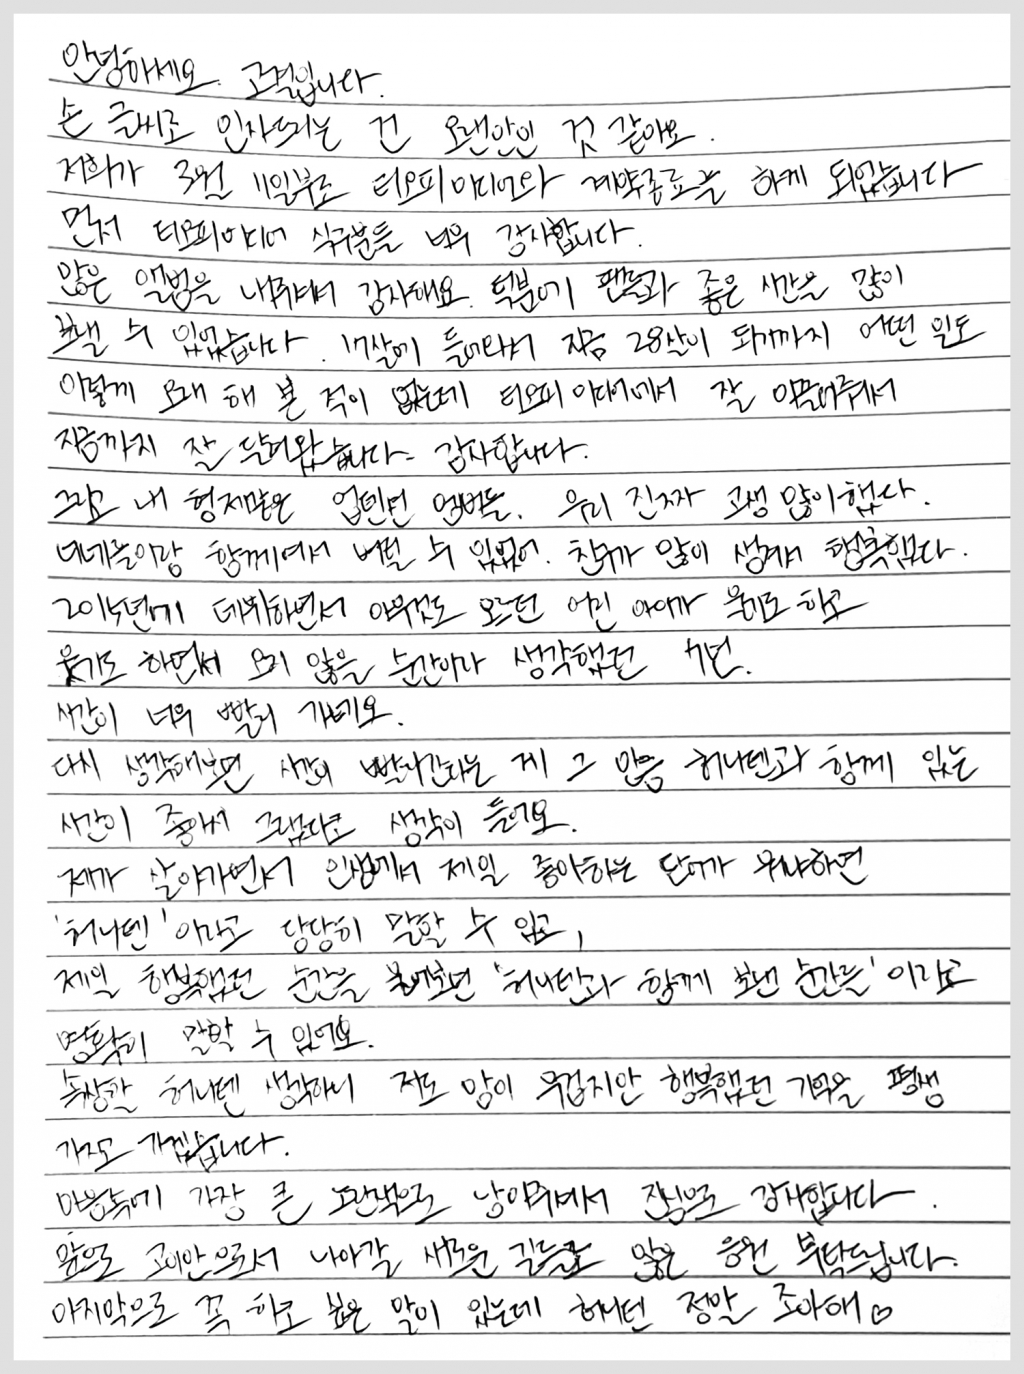 안녕하세요. 고결입니다.
손 글씨로 인사드리는 건 오랜만인 것 같아요.
저희가 3월 11일부로 티오피미디어와 계약종료를 하게 되었습니다
먼저 티오피미디어 식구분들 너무 감사합니다.
많은 앨범을 내주셔서 감사해요. 덕분에 팬들과 좋은 시간을 많이
보낼 수 있었습니다. 17살에 들어와서 지금 28살이 되기까지 어떤 일도
이렇게 오래 해 본 적이 없는데 티오피미디어에서 잘 이끌어주셔서
지금까지 잘 달려왔습니다. 감사합니다.
그리고 내 형제같은 업텐션 멤버들. 우리 진짜 고생 많이했다.
너네들이랑 함께여서 버틸 수 있었어. 친구가 많이 생겨서 행복했다.
2015년에 데뷔하면서 아무것도 모르던 어린 아이가 울기도 하고
웃기도 하면서 오지 않을 순간이라 생각했던 7년.
시간이 너무 빨리 가네요.
다시 생각해보면 시간이 빨리간다는 게 그 만큼 허니텐과 함께 있는
시간이 좋아서 그랬다고 생각이 들어요.
제가 살아가면서 인생에서 제일 좋아하는 단어가 뭐냐하면
'허니텐' 이라고 당당히 말할 수 있고,
제일 행복했던 순간을 물어보면 '허니텐과 함께 보낸 순간들' 이라고
명확히 말할 수 있어요.
속상할 허니텐 생각하니 저도 맘이 무겁지만 행복했던 기억을 평생
가지고 가겠습니다.
마음속에 가장 큰 조각으로 남아주셔서 진심으로 감사합니다.
앞으로 고이안으로서 나아갈 새로운 길들도 많은 응원 부탁드립니다.
마지막으로 꼭 하고 싶은 말이 있는데 허니텐 정말 조아해♡